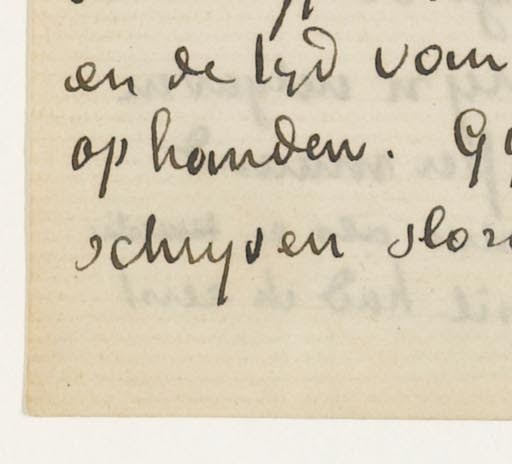 en de tijd van
ophanden. Gij
schrijven slor